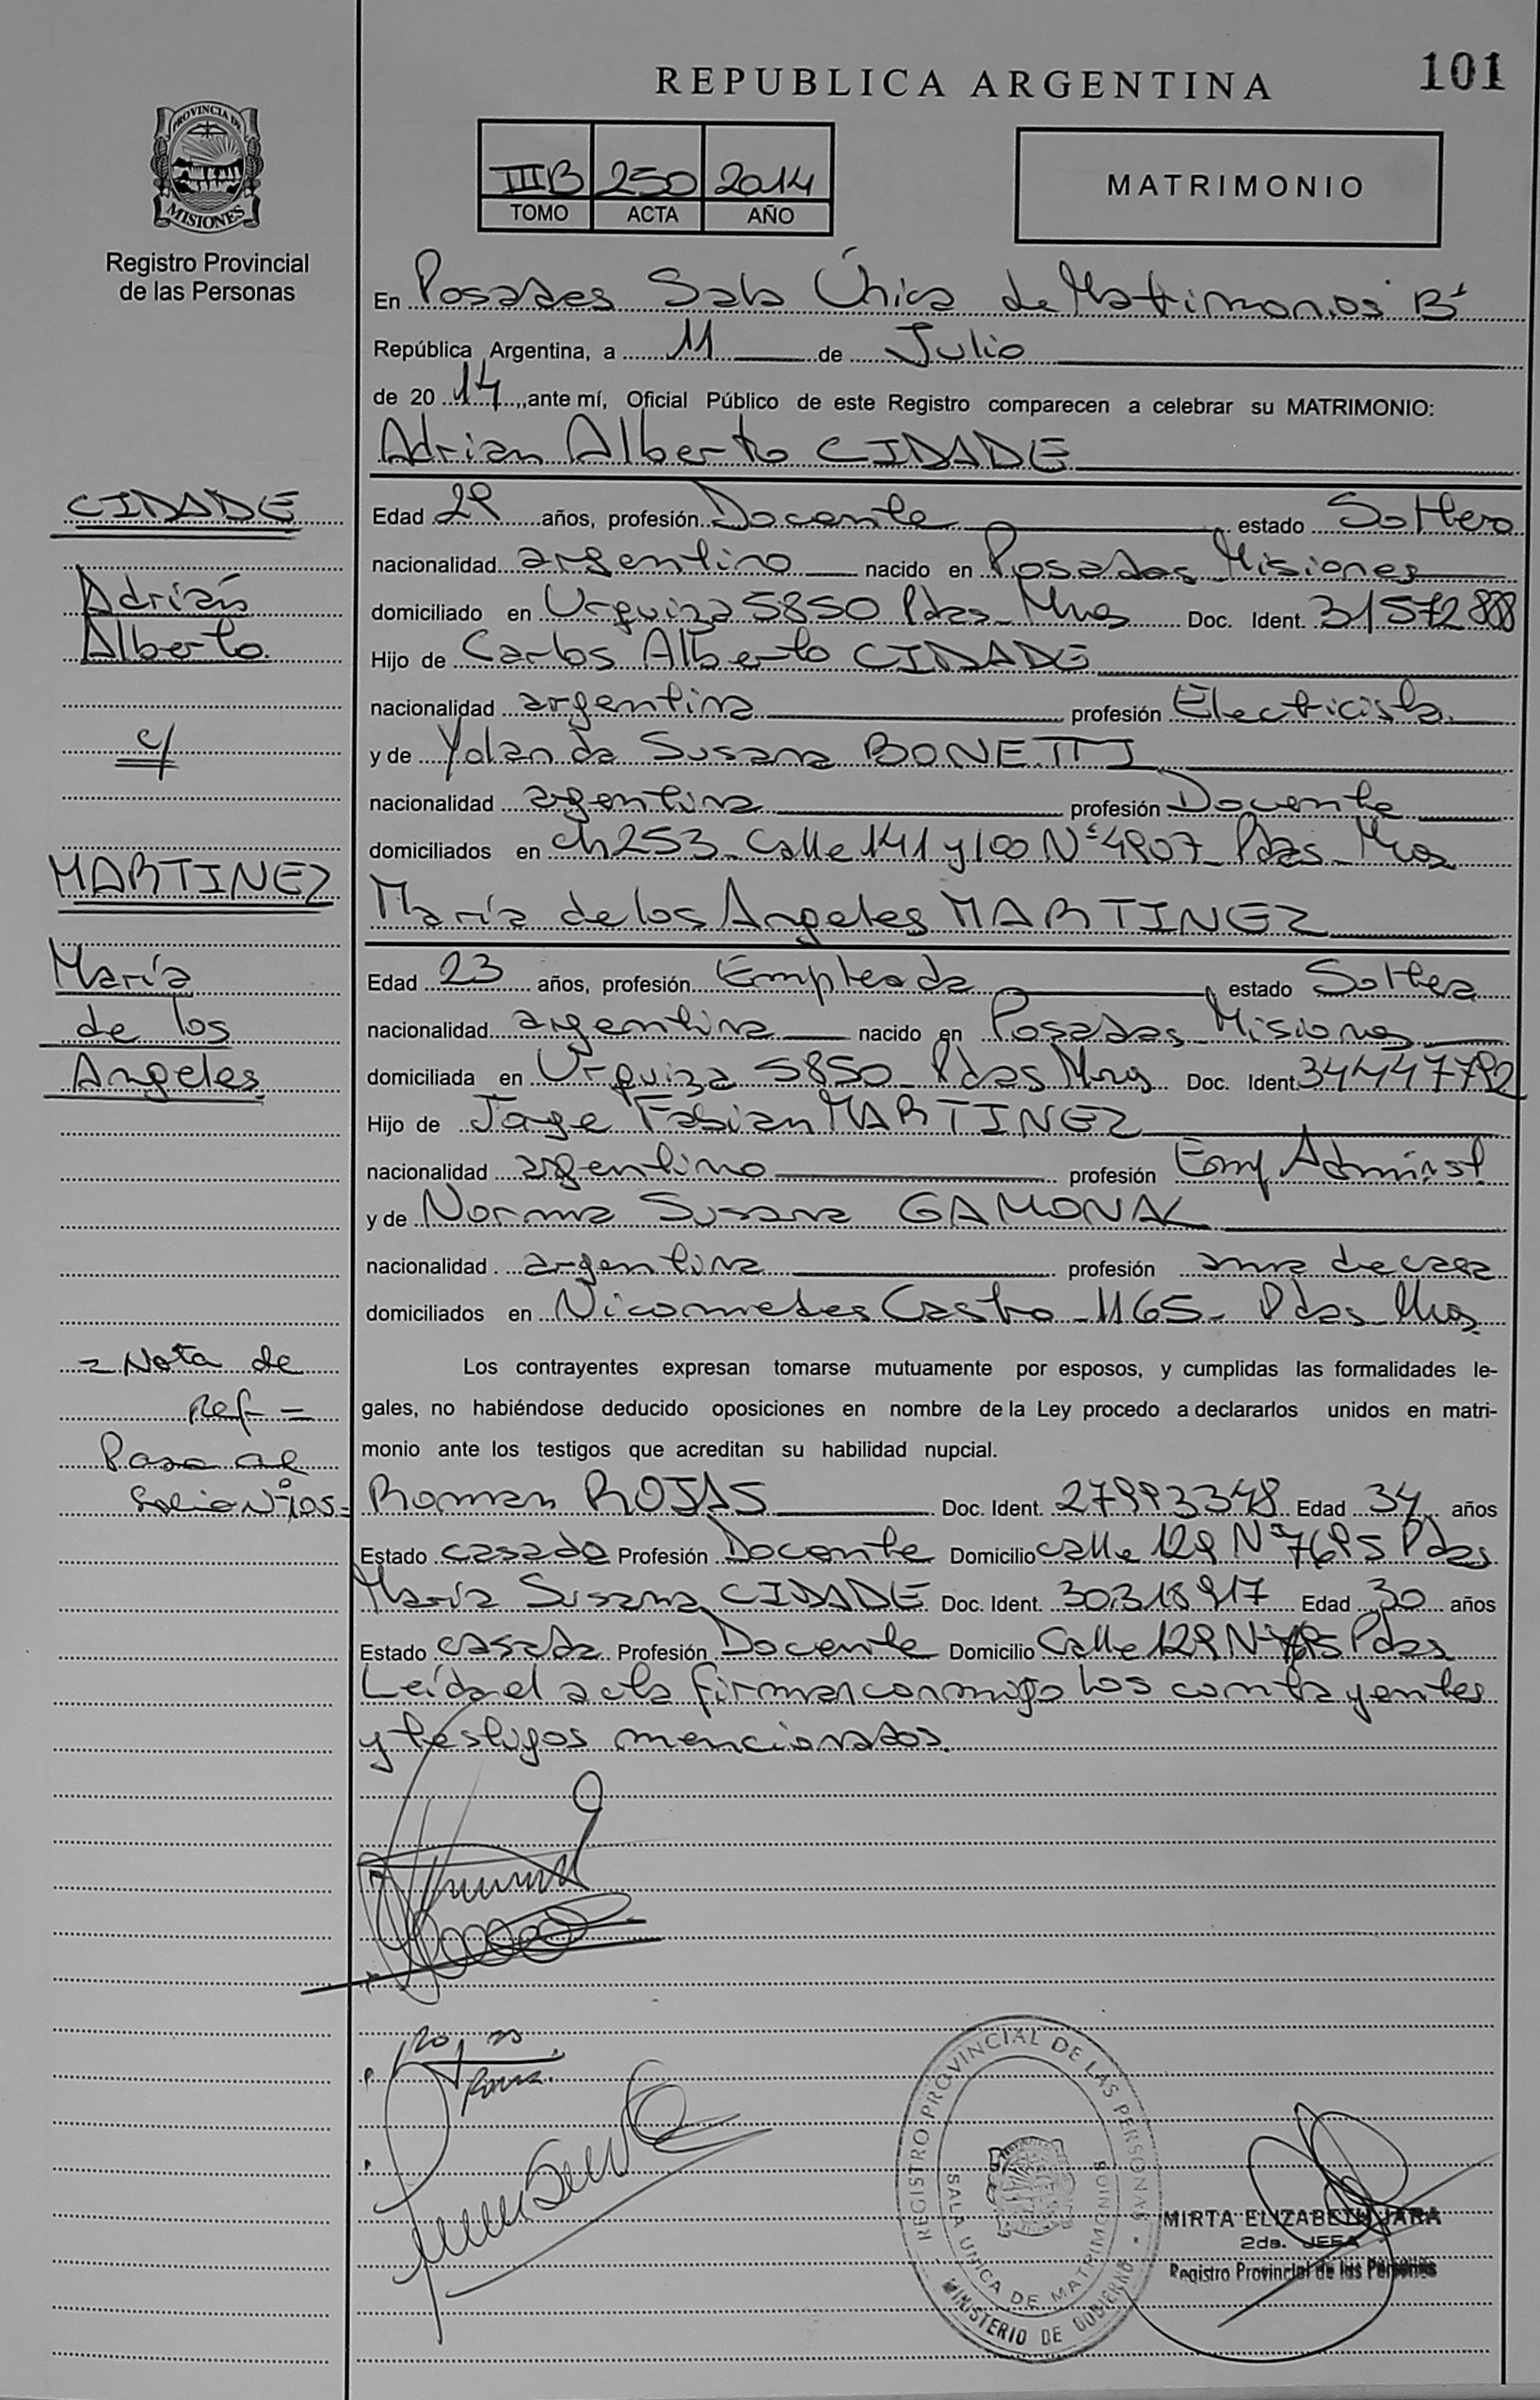 101
REPUBLICA ARGENTINA
PROVINCIA DE
MISIONES
Registro Provincial
de las Personas
IIIB 250 2014
TOMO ACTA AÑO
MATRIMONIO
En Posadas Sala Única de Matrimonios B
República Argentina, a 11 de Julio
de 20 14, ante mí, Oficial Público de este Registro comparecen a celebrar su MATRIMONIO:
Adrian Alberto CIDADE
CIDADE
Adrián
Alberto
c/
MARTINEZ
María
de los
Angeles
Edad 29 años, profesión Docente estado Soltero
nacionalidad argentino nacido en Posadas Misiones
domiciliado en Urquiza 5850 Pdas Mnes Doc. Ident. 31572888
Hijo de Carlos Alberto CIDADE
nacionalidad argentina profesión Electricista
y de Yolanda Susana BONETTI
nacionalidad argentina profesión Docente
domiciliados en ch 253 Calle 141 y 100 Nº 4907 Pdas Mnes
María de los Angeles MARTINEZ
Edad 23 años, profesión Empleada estado Soltera
nacionalidad argentina nacido en Posadas, Misiones
domiciliada en Urquiza 5850 Pdas Mnes Doc. Ident. 34447792
Hijo de Jorge Fabian MARTINEZ
nacionalidad argentino profesión Emp Administ.
y de Norma Susana GAMONAL
nacionalidad argentina profesión ama de casa
domiciliados en Nicomedes Castro 1165 Pdas Mnes
= Nota de
Ref =
Pasa al
folio Nº 105 =
Los contrayentes expresan tomarse mutuamente por esposos, y cumplidas las formalidades le-
gales, no habiéndose deducido oposiciones en nombre de la Ley procedo a declararlos unidos en matri-
monio ante los testigos que acreditan su habilidad nupcial.
Roman ROJAS Doc. Ident. 27993348 Edad 34 años
Estado casado Profesión Docente Domicilio calle 129 Nº 7695 Pdas
María Susana CIDADE Doc. Ident. 30.318.917 Edad 30 años
Estado casada Profesión Docente Domicilio Calle 129 Nº Pdas
Leída el acta firman conmigo los contrayentes
y testigos mencionados.
REGISTRO PROVINCIAL DE LAS PERSONAS
SALA UNICA DE MATRIMONIOS
MINISTERIO DE GOBIERNO
MIRTA ELIZABETH JARA
2da. JEFA
Registro Provincial de las Personas